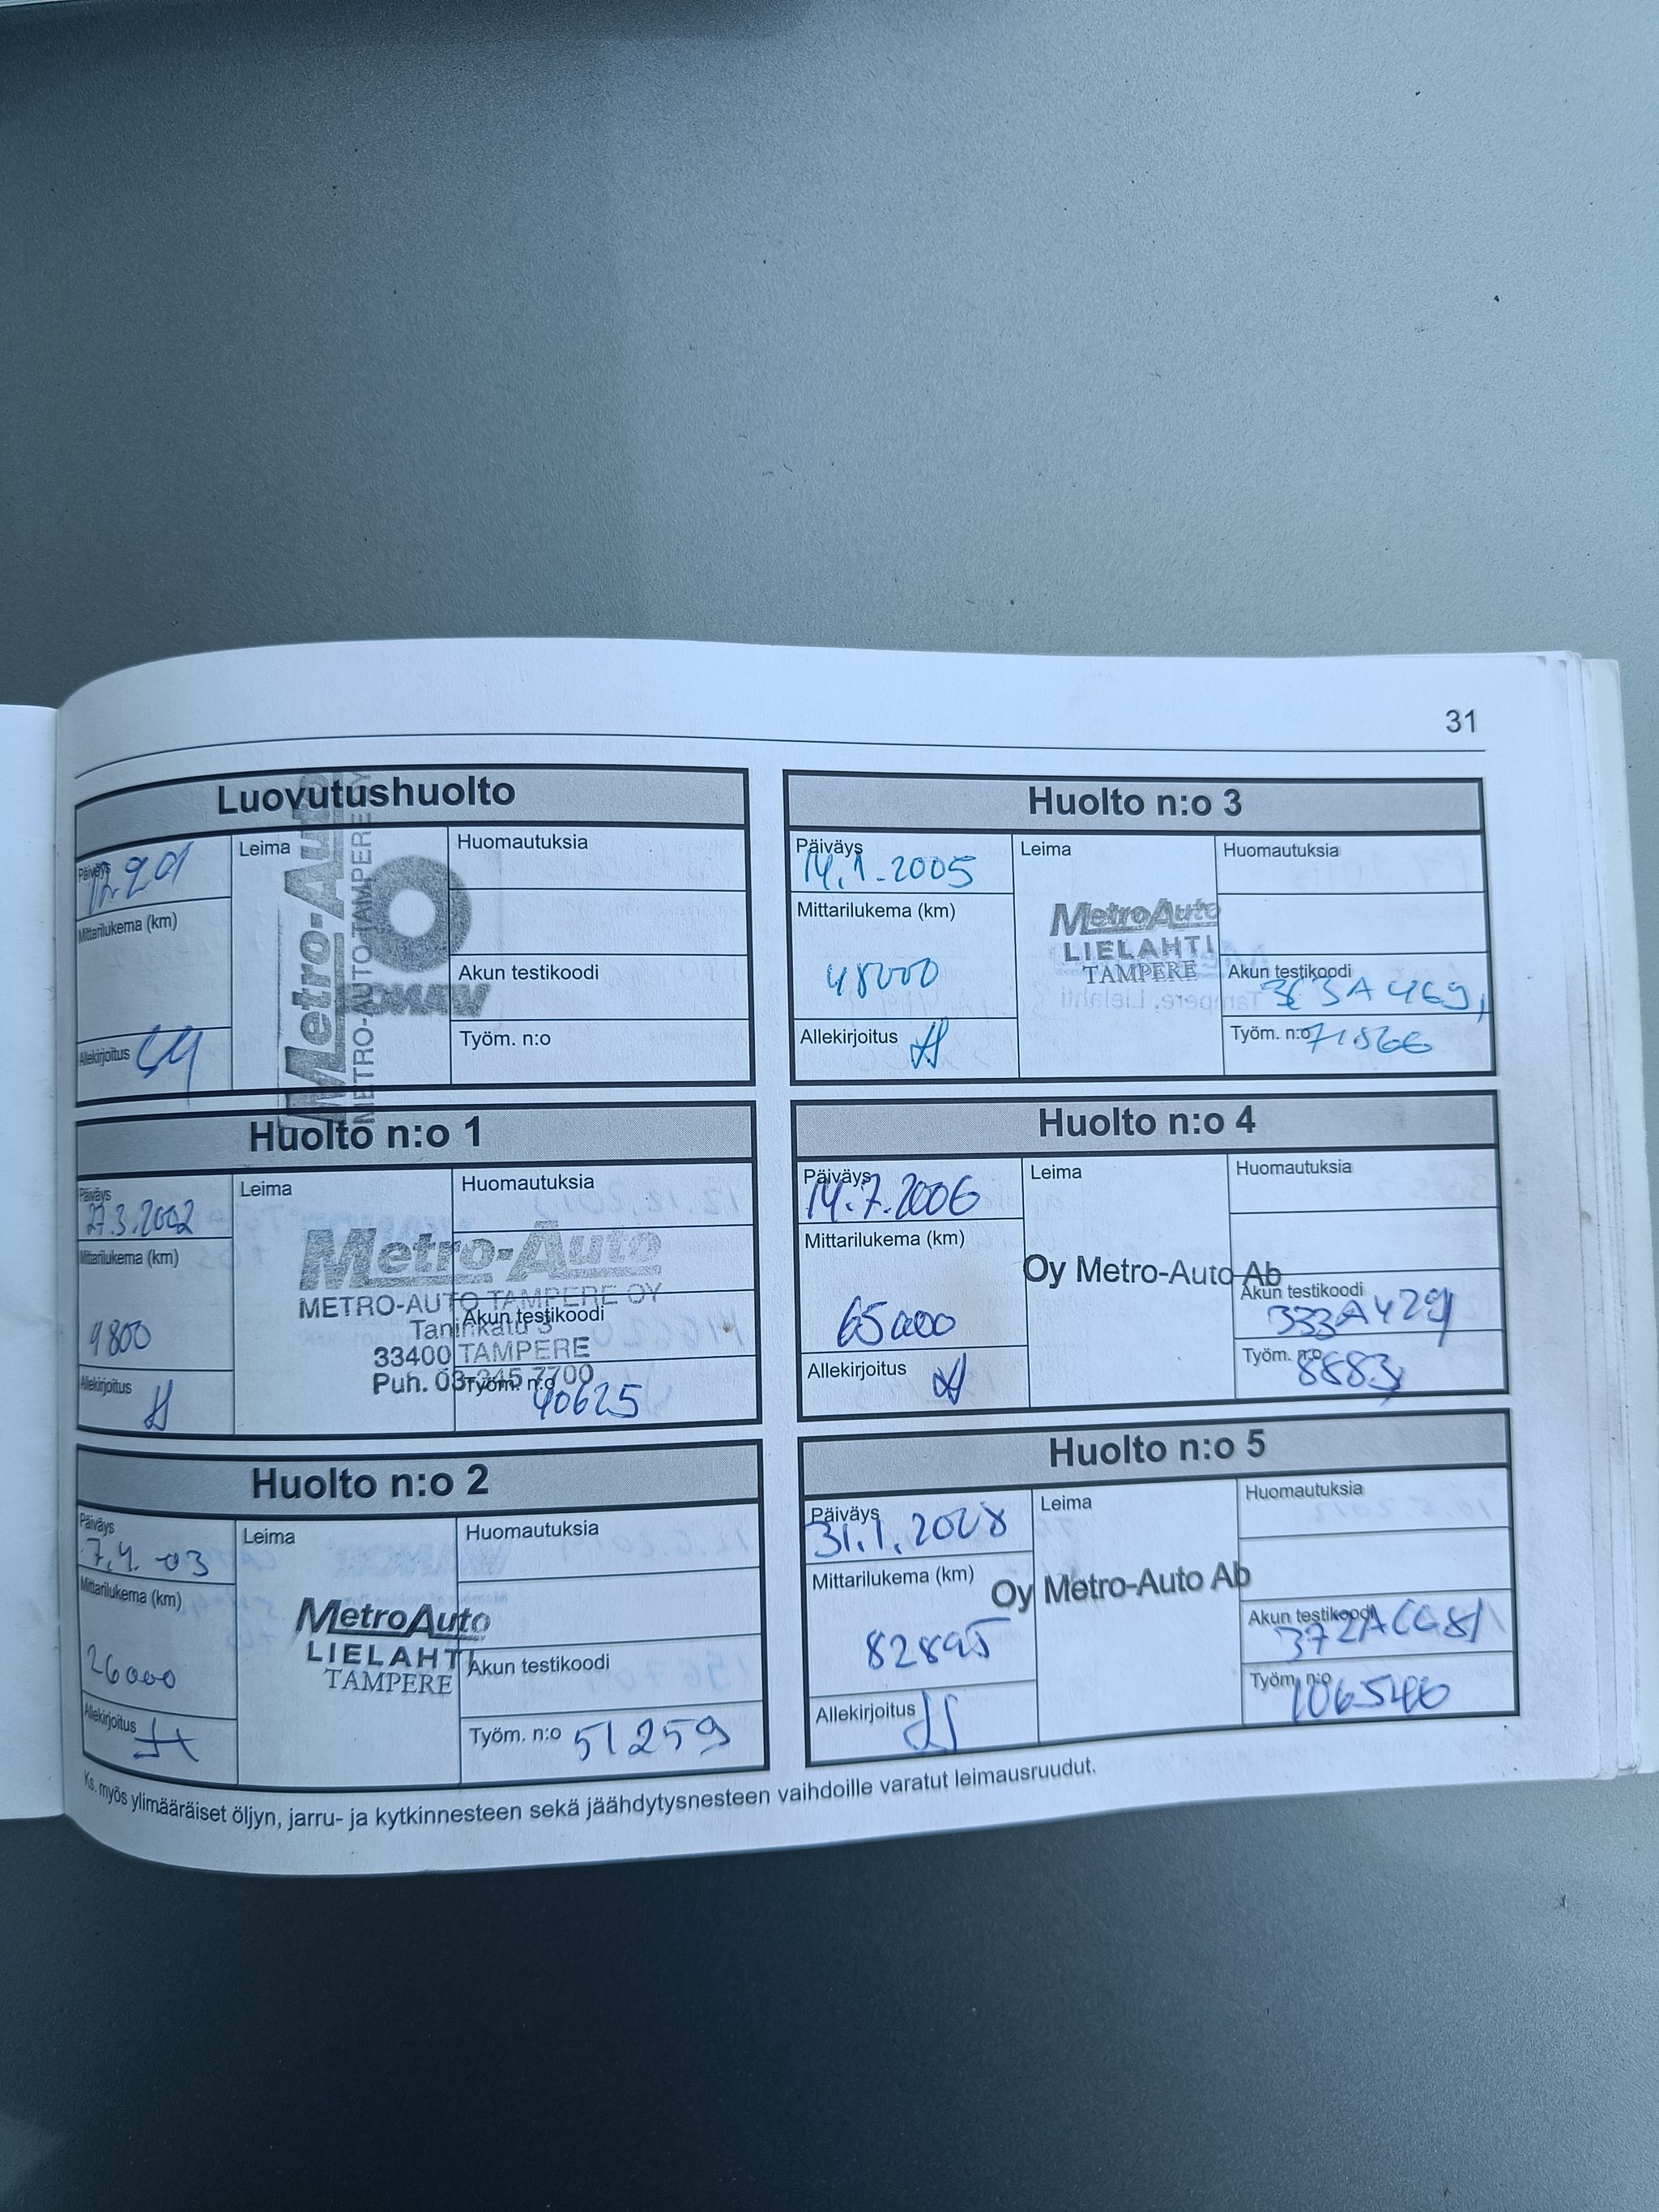 31
Luovutushuolto
Päiväys
Leima
Huomautuksia
Mittarilukema (km)
Metro-Auto
METRO-AUTO TAMPERE OY
Akun testikoodi
Allekirjoitus
Työm. n:o
Huolto n:o 1
Päiväys
27.3.2002
Leima
Huomautuksia
Mittarilukema (km)
9800
Metro-Auto
METRO-AUTO TAMPERE OY
Akun testikoodi
33400 TAMPERE
Puh. 03-345 7700
Allekirjoitus
Työm. n:o 40625
Huolto n:o 2
Päiväys
7.4.-03
Leima
Huomautuksia
Mittarilukema (km)
26000
MetroAuto
LIELAHTI
TAMPERE
Akun testikoodi
Allekirjoitus
Työm. n:o 51259
Huolto n:o 3
Päiväys
14.1.2005
Leima
Huomautuksia
Mittarilukema (km)
48000
MetroAuto
LIELAHTI
TAMPERE
Akun testikoodi
Allekirjoitus
Työm. n:o 71866
Huolto n:o 4
Päiväys
14.7.2006
Leima
Huomautuksia
Mittarilukema (km)
65000
Oy Metro-Auto Ab
Akun testikoodi
Allekirjoitus
Työm. n:o
Huolto n:o 5
Päiväys
31.1.2008
Leima
Huomautuksia
Mittarilukema (km)
82895
Oy Metro-Auto Ab
Akun testikoodi
Allekirjoitus
Työm. n:o 106540
Ks. myös ylimääräiset öljyn, jarru- ja kytkinnesteen sekä jäähdytysnesteen vaihdoille varatut leimausruudut.